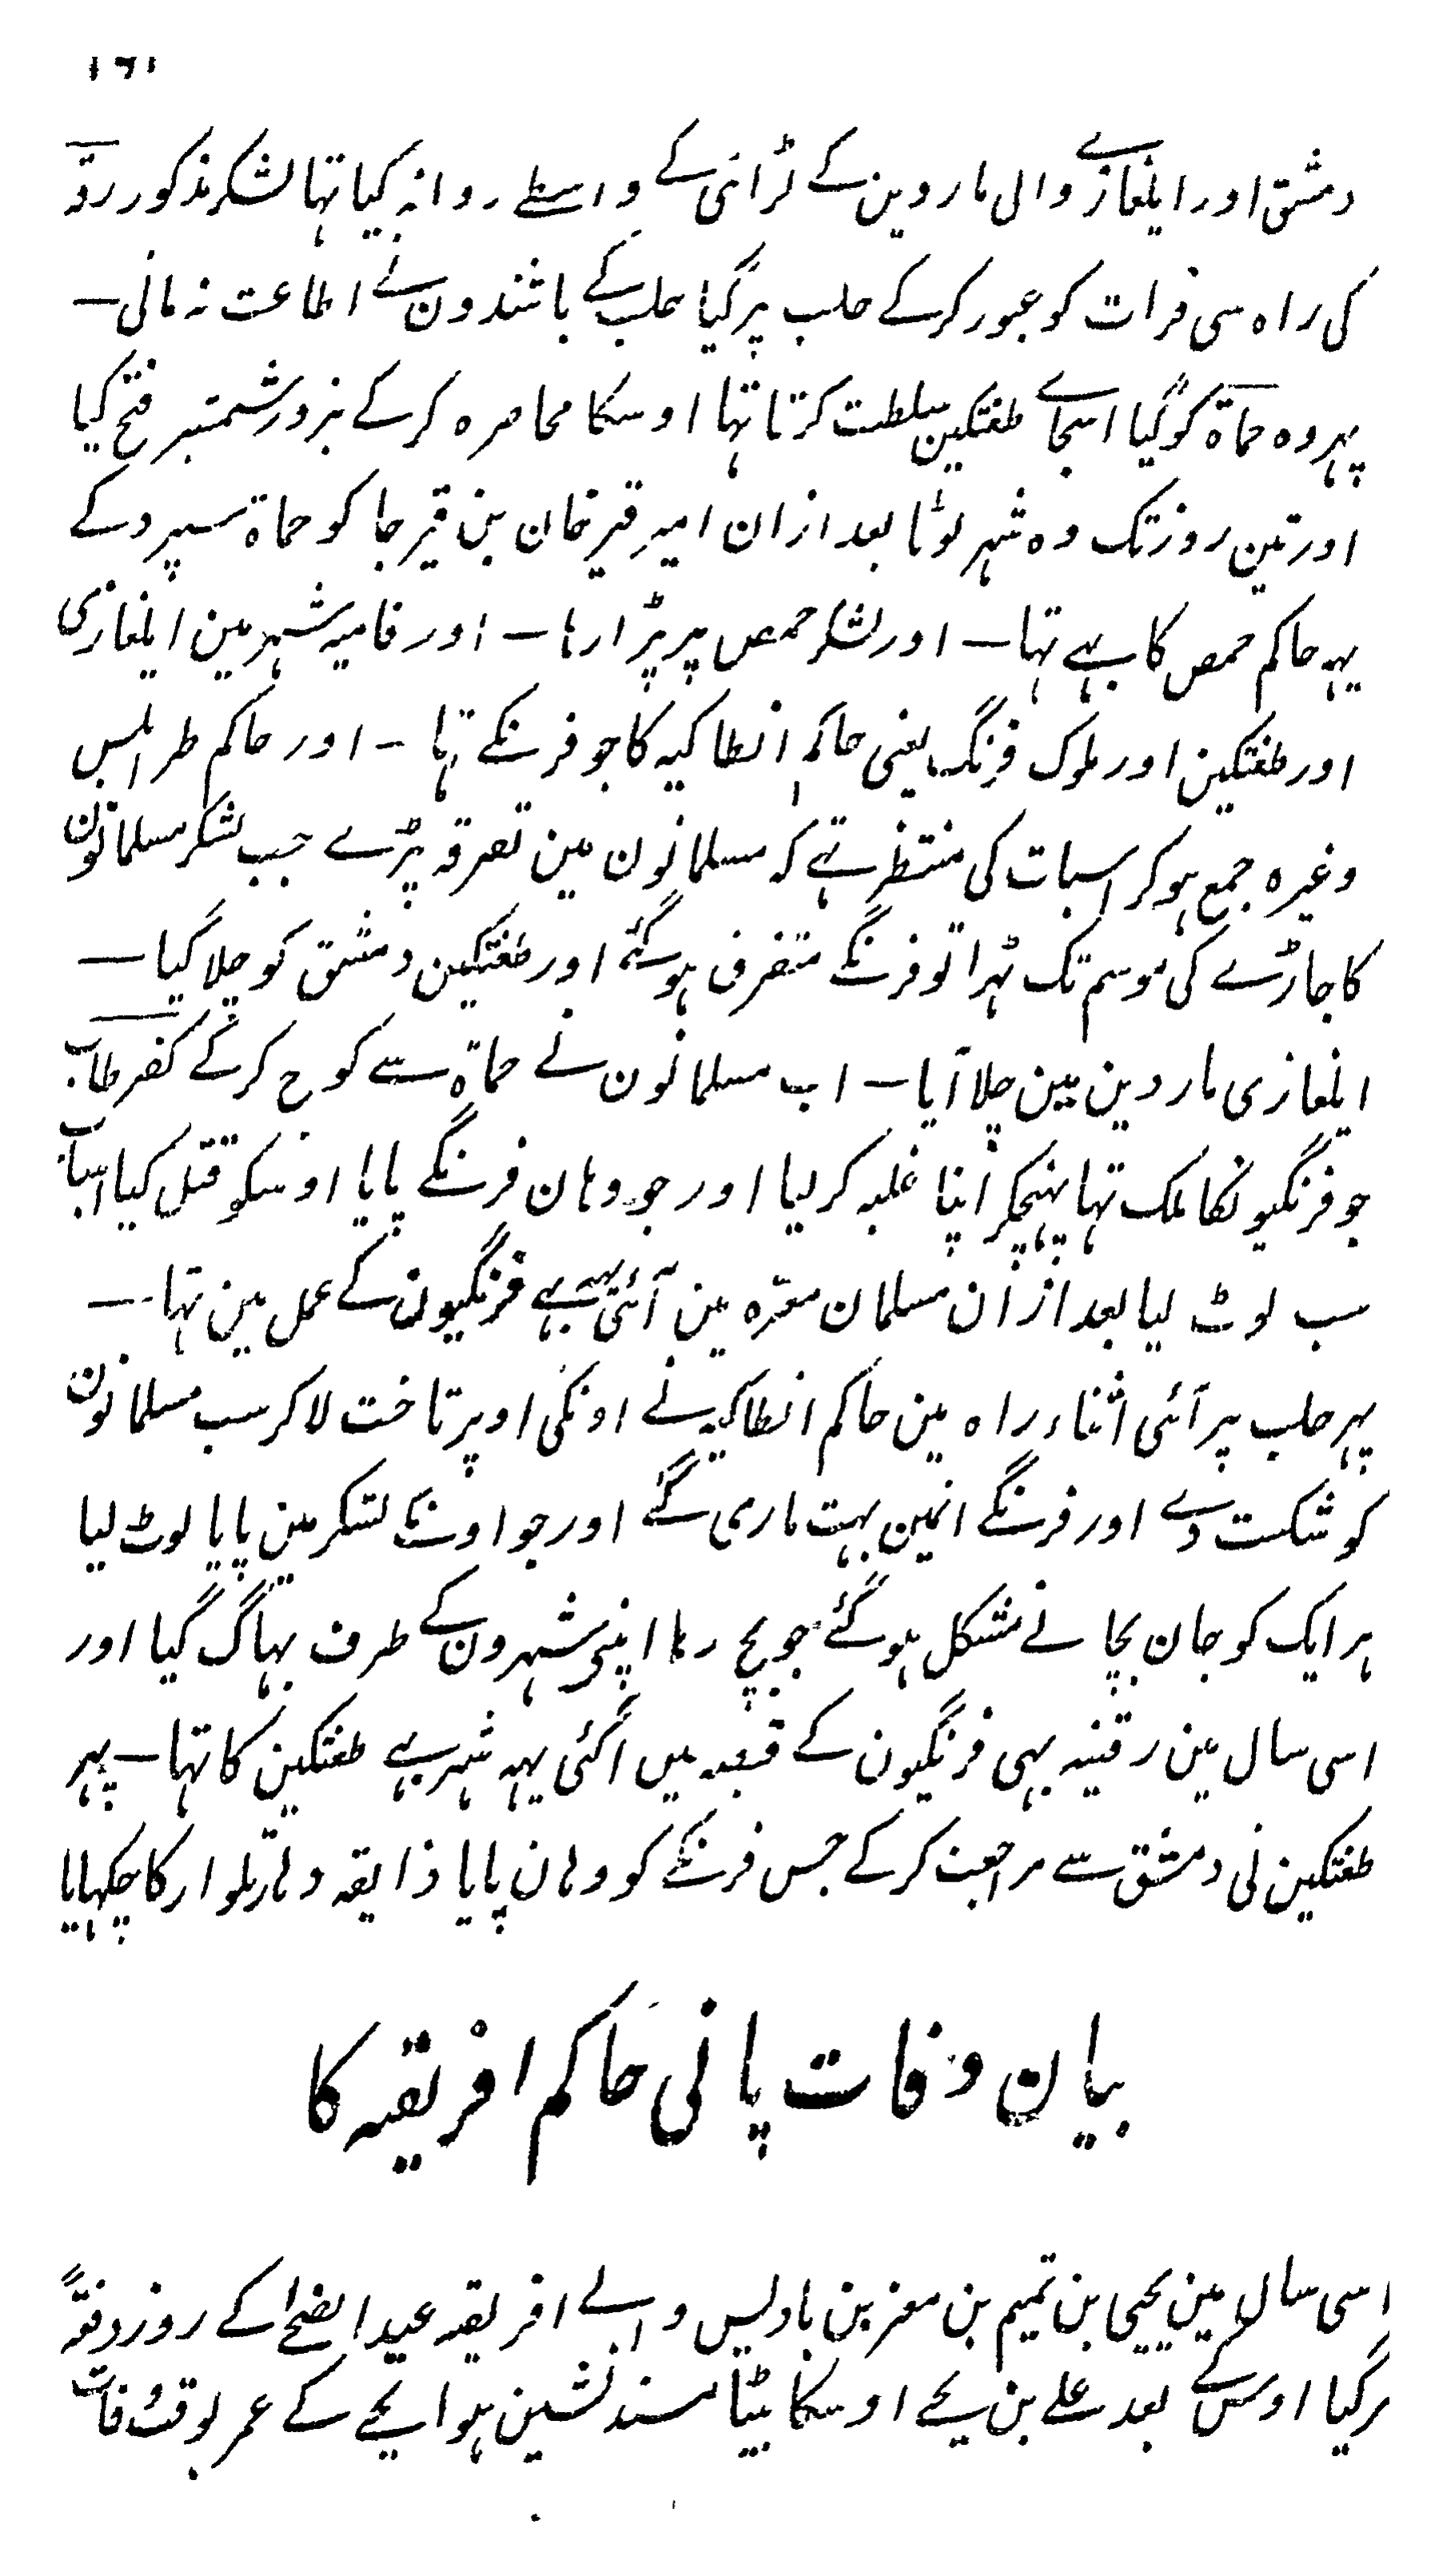 ۱۶۱
دمشق اور ایلغازے والی ماردین کے لڑائی کے واسطے روانہ کیا تہا لشکر مذکور رقہ
کی راہ سی فرات کو عبور کرکے حلب پر گیا حلب کے باشندون نے اطاعت نہ مانی —
پہر وہ حماۃ کو گیا اسجاے طغتکین سلطت کرتا تہا اوسکا محاصرہ کرکے بزور شمشیر فتح کیا
اور تین روز تک وہ شہر لوٹا بعد ازان امیر قیر خان بن قیرجا کو حماۃ سپرد کے
یہہ حاکم حمص کا بہے تہا — اور لشکر حمص پر پڑا رہا — اور فامیہ شہر مین ایلغازی
اور طغتکین اور ملوک فرنگ یعنی حاکم انطاکیہ کا جو فرنگے تہا — اور حاکم طرابلس
وغیرہ جمع ہوکر اسبات کی منتظر تہے کہ مسلمانون مین تفرقہ پڑے جب لشکر مسلمانون
کا جاڑے کی موسم تک ٹہرا تو فرنگے متفرق ہوگئے اور طغتکین دمشق کو چلا گیا —
ایلغازی ماردین مین چلا آیا — اب مسلمانون نے حماۃ سے کوچ کرکے کفرطاب
جو فرنگیونکا ملک تہا پہنچکر اپنا غلبہ کر لیا اور جو وہان فرنگے پایا اوسکو قتل کیا اسباب
سب لوٹ لیا بعد ازان مسلمان معرّہ مین آئی یہہ بہے فرنگیون کے عمل مین تہا —
پہر حلب پر آئی اثناء راہ مین حاکم انطاکیہ نے اونکی اوپر تاخت لا کر سب مسلمانون
کو شکست دے اور فرنگے انمین بہت ماری گے اور جو اونکے لشکر مین پایا لوٹ لیا
ہر ایک کو جان بچانے مشکل ہوگئے جو بچ رہا اپنی شہرون کے طرف بہاگ گیا اور
اسی سال مین رفنیہ بہی فرنگیون کے قبضہ میں آگئی یہہ شہر بہے طغتکین کا تہا — پہر
طغتکین نی دمشق سے مراجعت کرکے جس فرنگے کو وہان پایا ذایقہ دہار تلوار کا چکہایا
بیان وفات پانی حاکم افریقہ کا
اسی سال مین یحیی بن تمیم بن معز بن بادیس والے افریقہ عید اضحیٰ کے روز دفعۃً
مرگیا اوسکے بعد علے بن یحے اوسکا بیٹا مسند نشین ہوا یحے کے عمر بوقت وفات